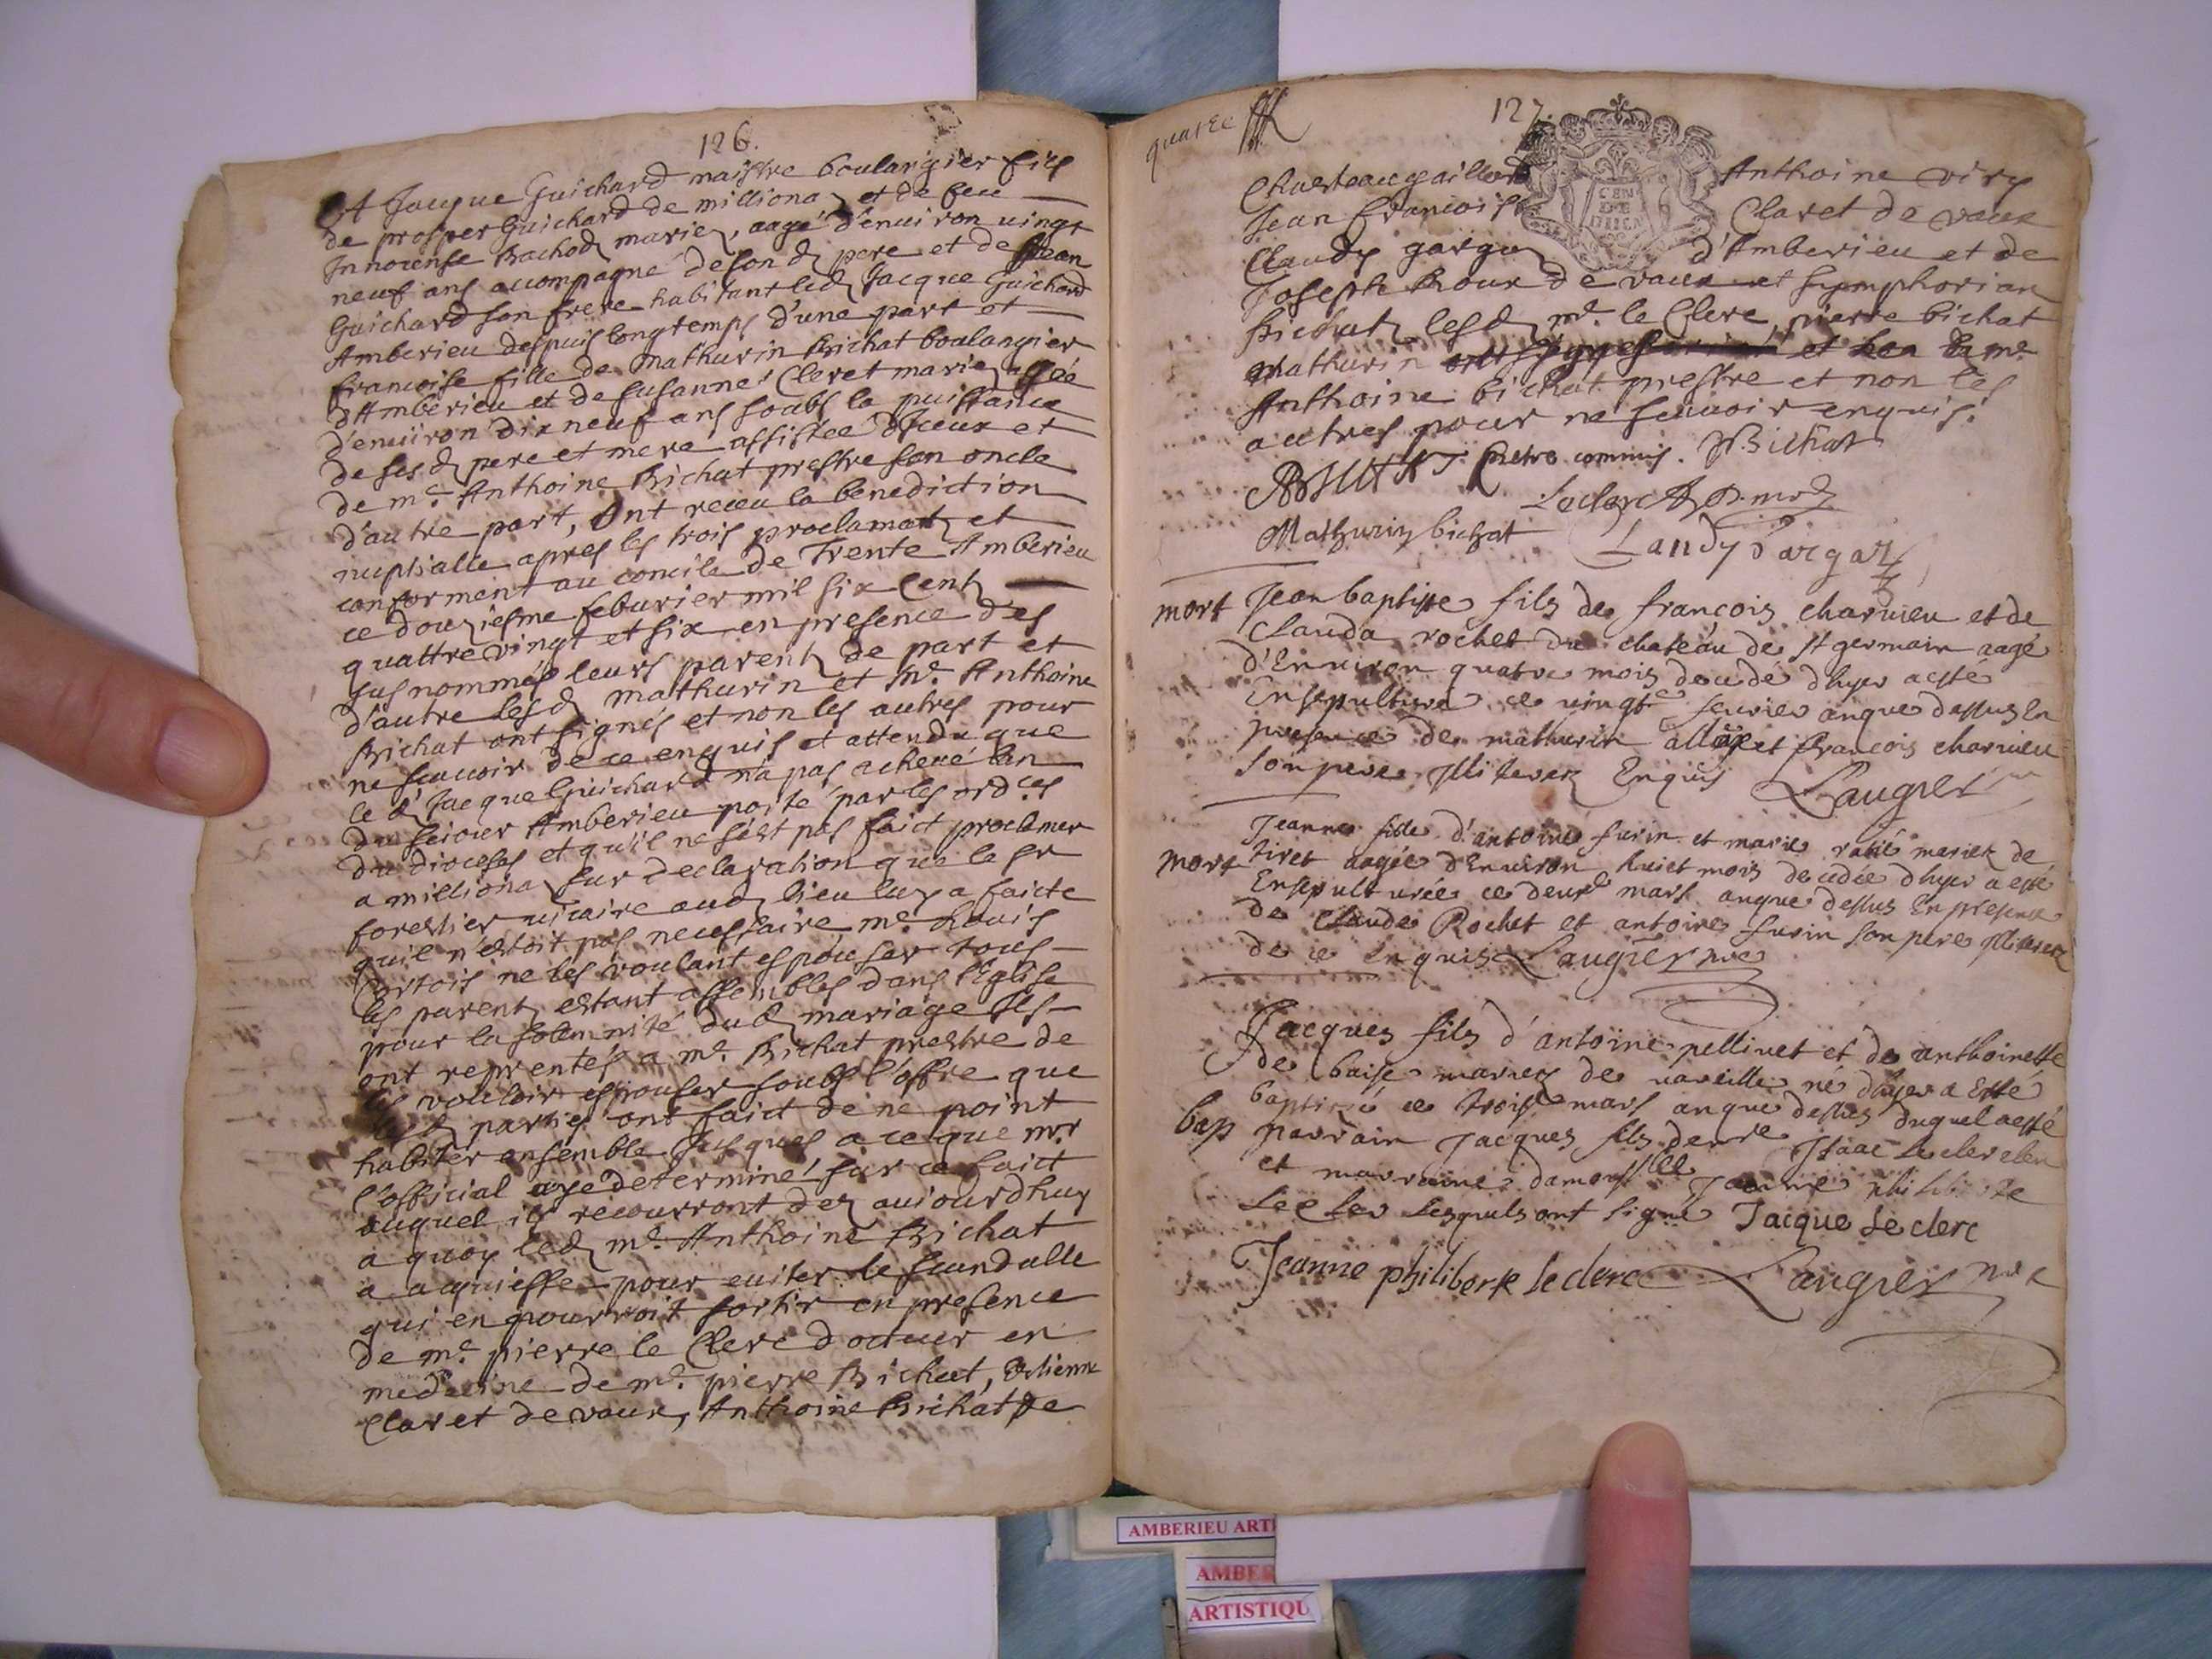 126.
Jacque Guichard maistre boulangier fils
de prosper Guichard de milliona et de feue
Innocense Bachod mariez, aagé d'enuiron vingt
neuf ans accompagné de son d pere et de Jean
Guichard son frere habitant led Jacque Guichard
Amberieu despuis longtemps d'une part et
francoise fille de Mathurin Bichat boulangier
d'Amberieu et de susanne Claret mariez agée
d'enuiron dix neuf ans soubs la puissance
de ses d pere et mere assistée d'iceux et
de me Anthoine Bichat prestre son oncle
d'autre part, Ont receu la benediction
nuptialle apres les trois proclamatz et
conforment au concile de Trente Amberieu
ce douziesme feburier mil six Cent
quattre vingt et six en presence des
susnommés leurs parentz de part et
d'autre lesd Mathurin et Me Anthoine
Bichat ont signés et non les autres pour
ne scauoir de ce enquis et attendu que
le d Jacque Guichard n'a pas acheué l'an
du seiour Amberieu porté par les ordces
du dioceses et qu'il ne s'est pas faict proclamer
a milliona sur declaration que le sr
forestier vicaire aud lieu luy a faicte
quil n'estoit pas necessaire me Louis
ne les voulant espouser tous
les parentz estant assemblés dans l'Eglise
pour la solemnité dud mariage Ils
ont reprentés a me Bichat prestre de
les vouloir espouser soubs l'offre que
lesd parties ont faict de ne point
habiter ensemble jusques a ce que mr
l'official aye determiné sur ce faict
auquel ils recourront dez auiourdhuy
a quoy led me Anthoine Bichat
a acquiesse pour euiter le scandalle
qui en pourroit sortir en presence
de me pierre le Clerc docteur en
medecine de me pierre Bichat, Estienne
Claret de vaux, Anthoine Bichat de
quatre
127.
Chasteaugaillard Anthoine viry
Jean francois Claret de vaux
Claudy gargaz d'Amberieu et de
Joseph Roux de vaux et Symphorian
Bichat lesd me le Clerc pierre bichat
Mathurin et me
Anthoine bichat prestre et non les
autres pour ne scauoir enquis.
Bichat pretre commis. P. Bichat
Leclerc D. md
Mathurin bichat Landy Gargaz
mort Jean baptiste fils de françois charuieu et de
Clauda rochet du chateau de st germain aagé
d'Enuiron quatre mois decedé dhyer a esté
Ensepulturé ce vingt feurier anque dessus En
presence de mathurin et francois charuieu
son pere Illiterez Enquis Laugier
Jeanne fille d'antoine furin et marie mariez de
mort tiret aagée d'Enuiron huict mois decedée dhyer a esté
Ensepulturée ce deux mars anque dessus En presence
de Claude Rochet et antoine furin son pere Illiterez
de ce Enquis Laugier pre
Jacques fils d'antoine pellinet et de anthoinette
de baise mariez de vareille né dhyer a Esté
baptizé ce trois mars anque dessus duquel a esté
bap parrain Jacques fils de Isaac Leclerc
et marraine damoislle Jeanne philiberte
Leclerc Lesquels ont signé Jacque Leclerc
Jeanne philiberte leclerc Laugier pre
AMBERIEU ARTI
AMBER
ARTISTIQU